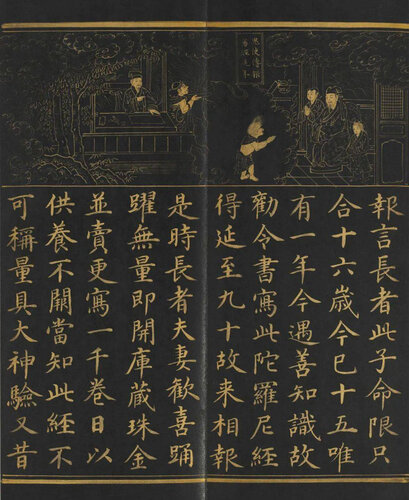 報言長者此子命限只
合十六歲今巳十五唯
有一年今遇善知識故
勸令書寫此陀羅尼經
得延至九十故来相報
是時長者夫妻歡喜踊
躍無量即開庫蔵珠金
並賣更寫一千卷日以
供養不闕當知此經不
可稱量具大神驗又昔